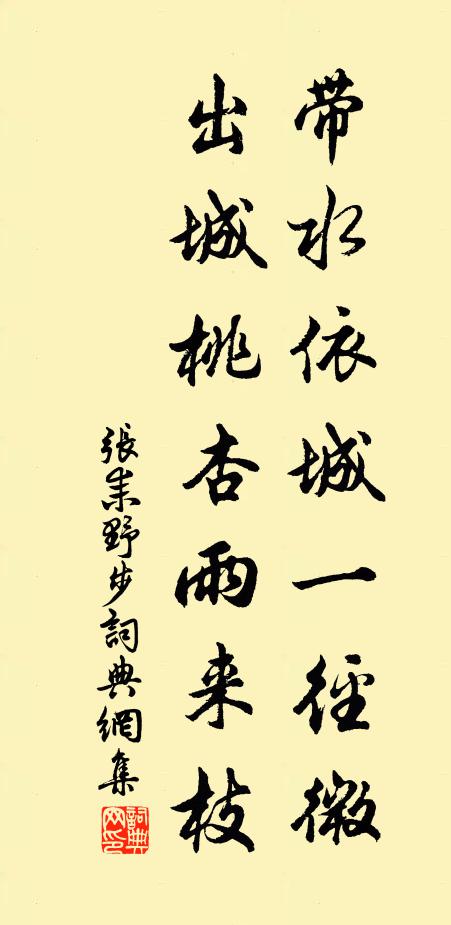 带水依城一径微
出城桃杏雨来枝
張耒野步詞典網集
詞典网印